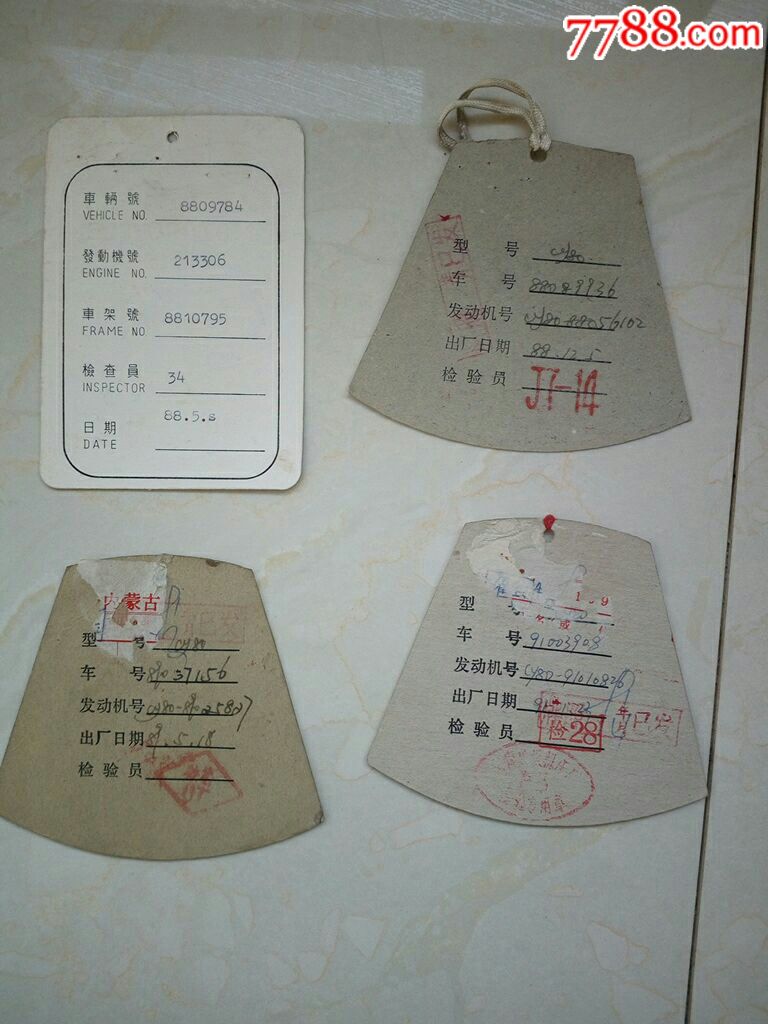 7788.com
車輛號 8809784
VEHICLE NO.
發動機號 213306
ENGINE NO.
車架號 8810795
FRAME NO.
檢查員 34
INSPECTOR
日期 88.5.s
DATE
型号 cy80
车号
发动机号 cy80-88056102
出厂日期 88.12.5
检验员 J7-14
内蒙古
型号 cy80
车号 89037156
发动机号
出厂日期 89.5.18
检验员
型号
车号 91003908
发动机号 cy80-91010826
出厂日期
检验员 检28